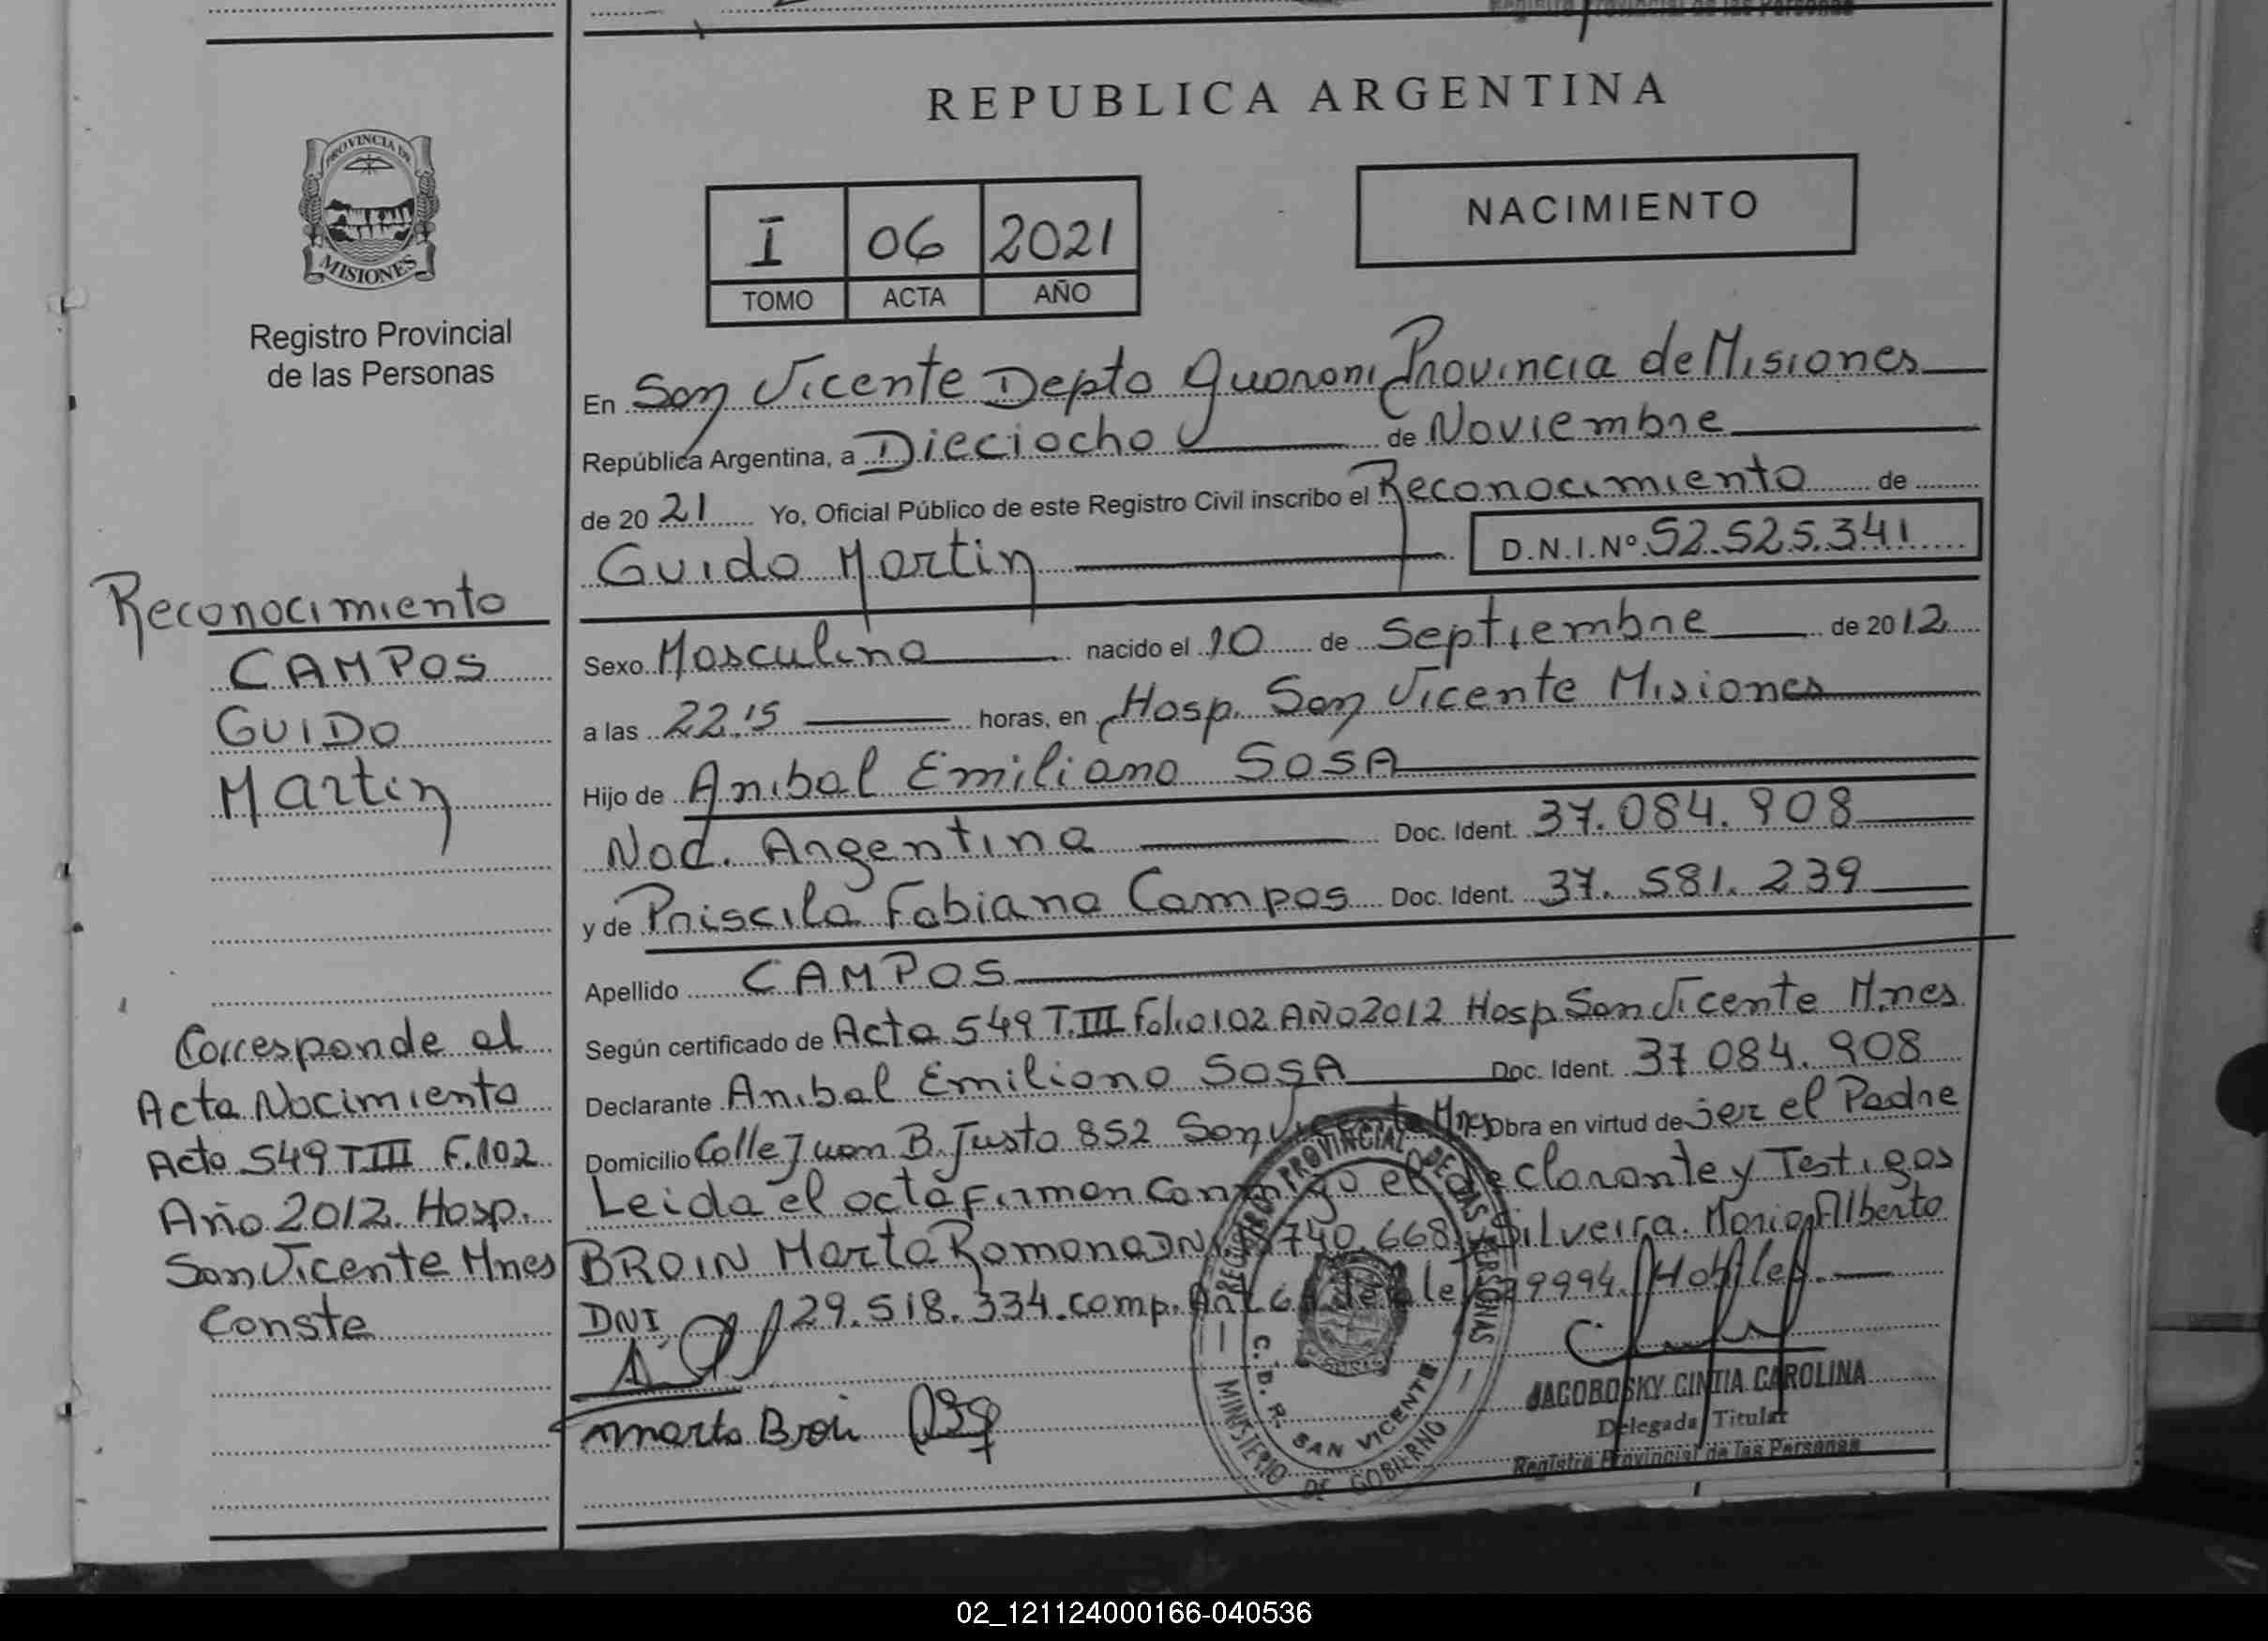 REPUBLICA ARGENTINA
PROVINCIA DE
MISIONES
Registro Provincial
de las Personas
I 06 2021
TOMO ACTA AÑO
NACIMIENTO
En San Vicente Depto Guarani Provincia de Misiones
República Argentina, a Dieciocho de Noviembre
de 20 21 Yo, Oficial Público de este Registro Civil inscribo el Reconocimiento de
Guido Martin D.N.I.Nº 52.525.341
Sexo Masculino nacido el 10 de Septiembre de 20 12
a las 22.15 horas, en Hosp. San Vicente Misiones
Hijo de Anibal Emiliano SOSA
Nac. Argentina Doc. Ident. 37.084.908
y de Priscila Fabiana Campos Doc. Ident. 37.581.239
Apellido CAMPOS
Según certificado de Acta 549 T.III Folio 102 AÑO 2012 Hosp San Vicente Mnes
Declarante Anibal Emiliano SOSA Doc. Ident. 37 084.908
Domicilio Calle Juan B. Justo 852 San Vicente Mnes Obra en virtud de ser el Padre
Leida el acta firman conmigo el declarante y Testigos
BROIN Marta Romana DNI 740.668 y Silveira Mario Alberto
DNI 29.518.334. comp. Art 6
Marta Broin
Reconocimiento
CAMPOS
GUIDO
Martin
Corresponde al
Acta Nacimiento
Acta 549 T III F.102
Año 2012 Hosp.
San Vicente Mnes
Conste
REGISTRO PROVINCIAL DE LAS PERSONAS
C. D. R. SAN VICENTE
MINISTERIO DE GOBIERNO
JACOBOSKY CINTIA CAROLINA
Delegada Titular
Registro Provincial de las Personas
02_121124000166-040536